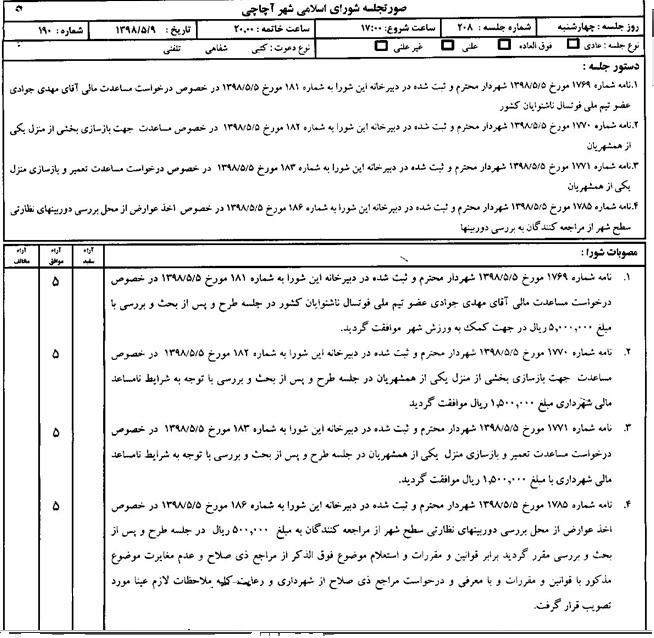 صورتجلسه شورای اسلامی شهر آچاچی
روز جلسه: چهارشنبه شماره جلسه: ۲۰۸ ساعت شروع: ۱۷:۰۰ ساعت خاتمه: ۲۰،۰۰ تاریخ: ۱۳۹۸/۵/۹ شماره: ۱۹۰
نوع جلسه: عادی فوق العاده علنی غیر علنی نوع دعوت: کتبی شفاهی تلفنی
دستور جلسه:
۱.نامه شماره ۱۷۶۹ مورخ ۱۳۹۸/۵/۵ شهردار محترم و ثبت شده در دبیرخانه این شورا به شماره ۱۸۱ مورخ ۱۳۹۸/۵/۵ در خصوص درخواست مساعدت مالی آقای مهدی جوادی
عضو تیم ملی فوتسال ناشنوایان کشور
۲.نامه شماره ۱۷۷۰ مورخ ۱۳۹۸/۵/۵ شهردار محترم و ثبت شده در دبیرخانه این شورا به شماره ۱۸۲ مورخ ۱۳۹۸/۵/۵ در خصوص مساعدت جهت بازسازی بخشی از منزل یکی
از همشهریان
۳.نامه شماره ۱۷۷۱ مورخ ۱۳۹۸/۵/۵ شهردار محترم و ثبت شده در دبیرخانه این شورا به شماره ۱۸۳ مورخ ۱۳۹۸/۵/۵ در خصوص درخواست مساعدت تعمیر و بازسازی منزل
یکی از همشهریان
۴.نامه شماره ۱۷۸۵ مورخ ۱۳۹۸/۵/۵ شهردار محترم و ثبت شده در دبیرخانه این شورا به شماره ۱۸۶ مورخ ۱۳۹۸/۵/۵ در خصوص اخذ عوارض از محل بررسی دوربینهای نظارتی
سطح شهر از مراجعه کنندگان به بررسی دوربینها
مصوبات شورا: آراء سفید آراء موافق آراء مخالف
۱. نامه شماره ۱۷۶۹ مورخ ۱۳۹۸/۵/۵ شهردار محترم و ثبت شده در دبیرخانه این شورا به شماره ۱۸۱ مورخ ۱۳۹۸/۵/۵ در خصوص ۵
درخواست مساعدت مالی آقای مهدی جوادی عضو تیم ملی فوتسال ناشنوایان کشور در جلسه طرح و پس از بحث و بررسی با
مبلغ ۵,۰۰۰,۰۰۰ ریال در جهت کمک به ورزش شهر موافقت گردید.
۲. نامه شماره ۱۷۷۰ مورخ ۱۳۹۸/۵/۵ شهردار محترم و ثبت شده در دبیرخانه این شورا به شماره ۱۸۲ مورخ ۱۳۹۸/۵/۵ در خصوص ۵
مساعدت جهت بازسازی بخشی از منزل یکی از همشهریان در جلسه طرح و پس از بحث و بررسی با توجه به شرایط نامساعد
مالی شهرداری مبلغ ۱,۵۰۰,۰۰۰ ریال موافقت گردید
۳. نامه شماره ۱۷۷۱ مورخ ۱۳۹۸/۵/۵ شهردار محترم و ثبت شده در دبیرخانه این شورا به شماره ۱۸۳ مورخ ۱۳۹۸/۵/۵ در خصوص ۵
درخواست مساعدت تعمیر و بازسازی منزل یکی از همشهریان در جلسه طرح و پس از بحث و بررسی با توجه به شرایط نامساعد
مالی شهرداری با مبلغ ۱,۵۰۰,۰۰۰ ریال موافقت گردید.
۴. نامه شماره ۱۷۸۵ مورخ ۱۳۹۸/۵/۵ شهردار محترم و ثبت شده در دبیرخانه این شورا به شماره ۱۸۶ مورخ ۱۳۹۸/۵/۵ در خصوص ۵
اخذ عوارض از محل بررسی دوربینهای نظارتی سطح شهر از مراجعه کنندگان به مبلغ ۵۰۰,۰۰۰ ریال در جلسه طرح و پس از
بحث و بررسی مقرر گردید برابر قوانین و مقررات و استعلام موضوع فوق الذکر از مراجع ذی صلاح و عدم مغایرت موضوع
مذکور با قوانین و مقررات و با معرفی و درخواست مراجع ذی صلاح از شهرداری و رعایت کلیه ملاحظات لازم عینا مورد
تصویب قرار گرفت.